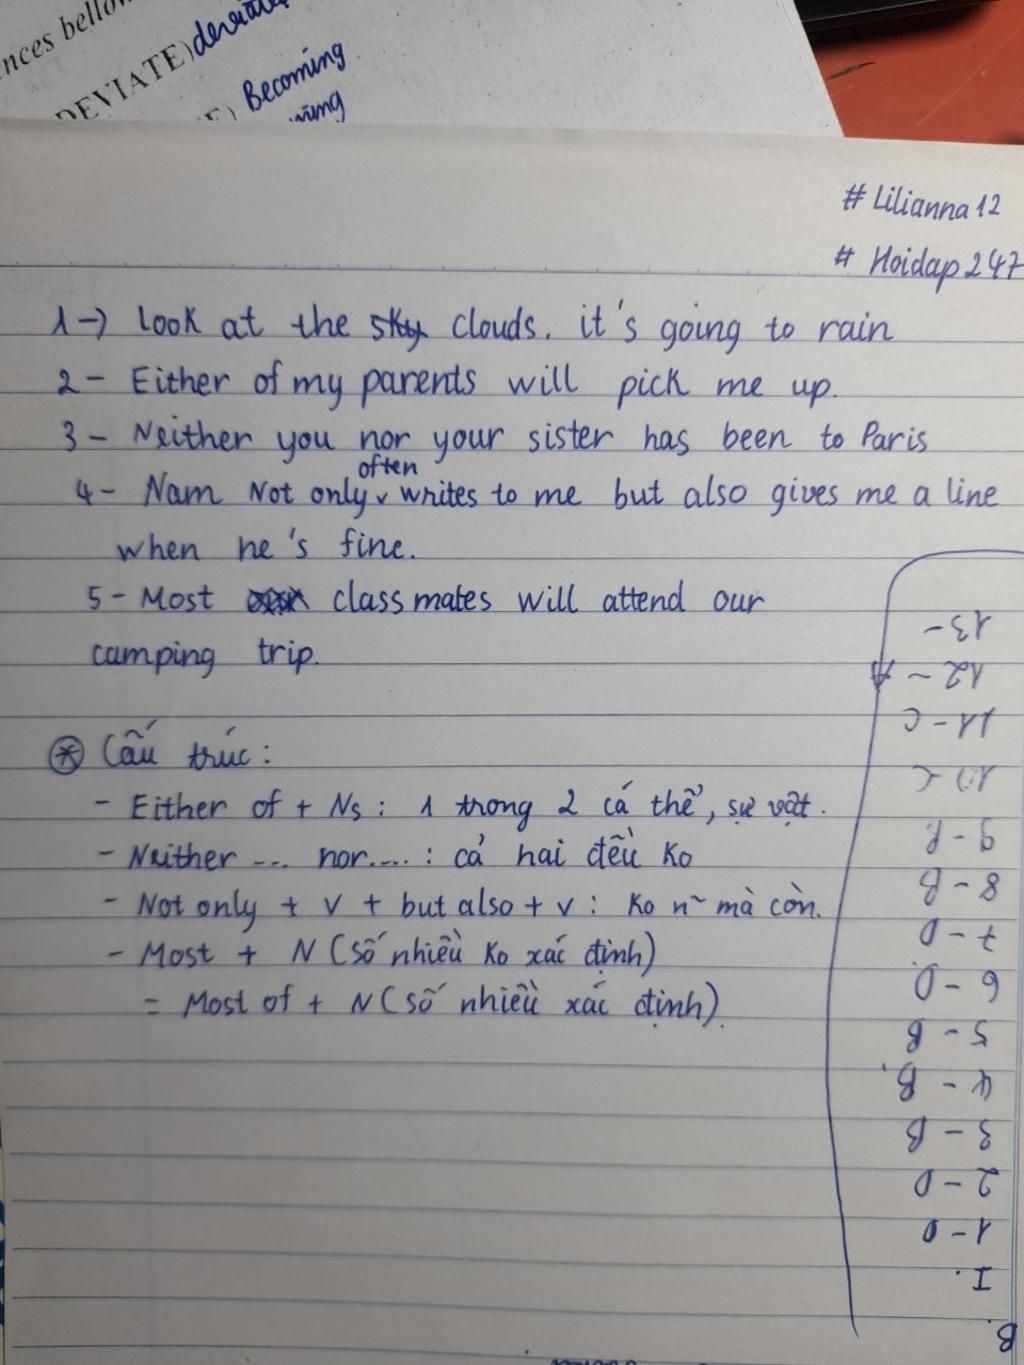 ences bellow
DEVIATE) deviate
Becoming
# Lilianna12
# Hoidap247
1-> Look at the sky clouds. it's going to rain
2- Either of my parents will pick me up.
3- Neither you nor your sister has been to Paris
often
4- Nam Not only v writes to me but also gives me a line
when he's fine.
5- Most classmates will attend our
camping trip.
* Cấu trúc:
- Either of + Ns : 1 trong 2 cá thể, sự vật.
- Neither ... nor.... : cả hai đều ko
- Not only + v + but also + v : Ko n~ mà còn.
- Most + N (số nhiều ko xác định)
= Most of + N (số nhiều xác định).
B.
I.
1-D
2-D
3-B
4-B.
5-B
6-D.
7-D
8-B
9-
10-C
11-C
12-A
13-